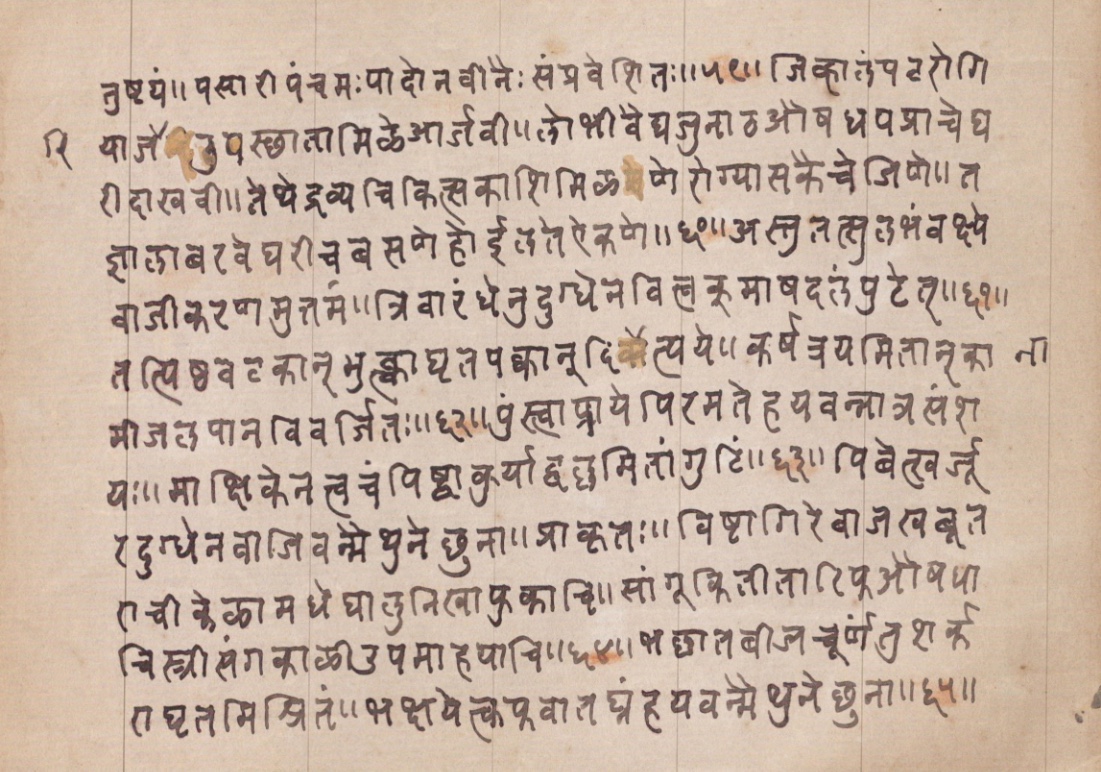 तुष्टयं॥ पसारी पंचमः पादो नवीनैः संप्रवेशितः॥५९॥ जिकालंपटरोगि
रि याजै उपस्छातामिळे आर्जवी॥ लोभी वैद्य जुनाठ औषध पत्राचे घ
री दाखवी॥ तेथे द्रव्य चिकित्सकाशि मिळ णे रोग्यास कैचे जिणे॥ त
झाला बरवे घरीच बसणे होईल ते ऐकणे॥६०॥ अस्तु तत्सुलभं वक्ष्ये
वाजीकरणमुत्तमं॥ त्रिवारं धेनुदुग्धेन वित्वकूमाषदलं पुटेत्॥६१॥
तत्पिष्ठवटकान् भुत्क्वा घृतपक्कान् दि त्यये॥ कर्षत्रयमितान् का ना
मीजलपानविवर्जितः॥६२॥ पुंस्त्वाप्राये पिरमते हयवन्नात्र संश
यः॥ माक्षिकेन त्वचं पिष्ट्वा कुर्याद्वल्लमितां गुटिं॥६३॥ पिबेत्खर्जू
रदुग्धेन वाजिवन्मैथुनेछुना॥ प्राकृतः॥ विष्टागिरे वाजखबूत
राची केळामधे घालुनि खा फुकाचि॥ सांगू किती तारिफ औषधा
चि स्त्रीसंगकाळी उपमा हयाचि॥६४॥ भछातबीजचूर्णं तु शर्क
राघृतमिश्रितं॥ भक्षयेत्कफवातघ्नं हयवन्मैथुनेछुना॥६५॥